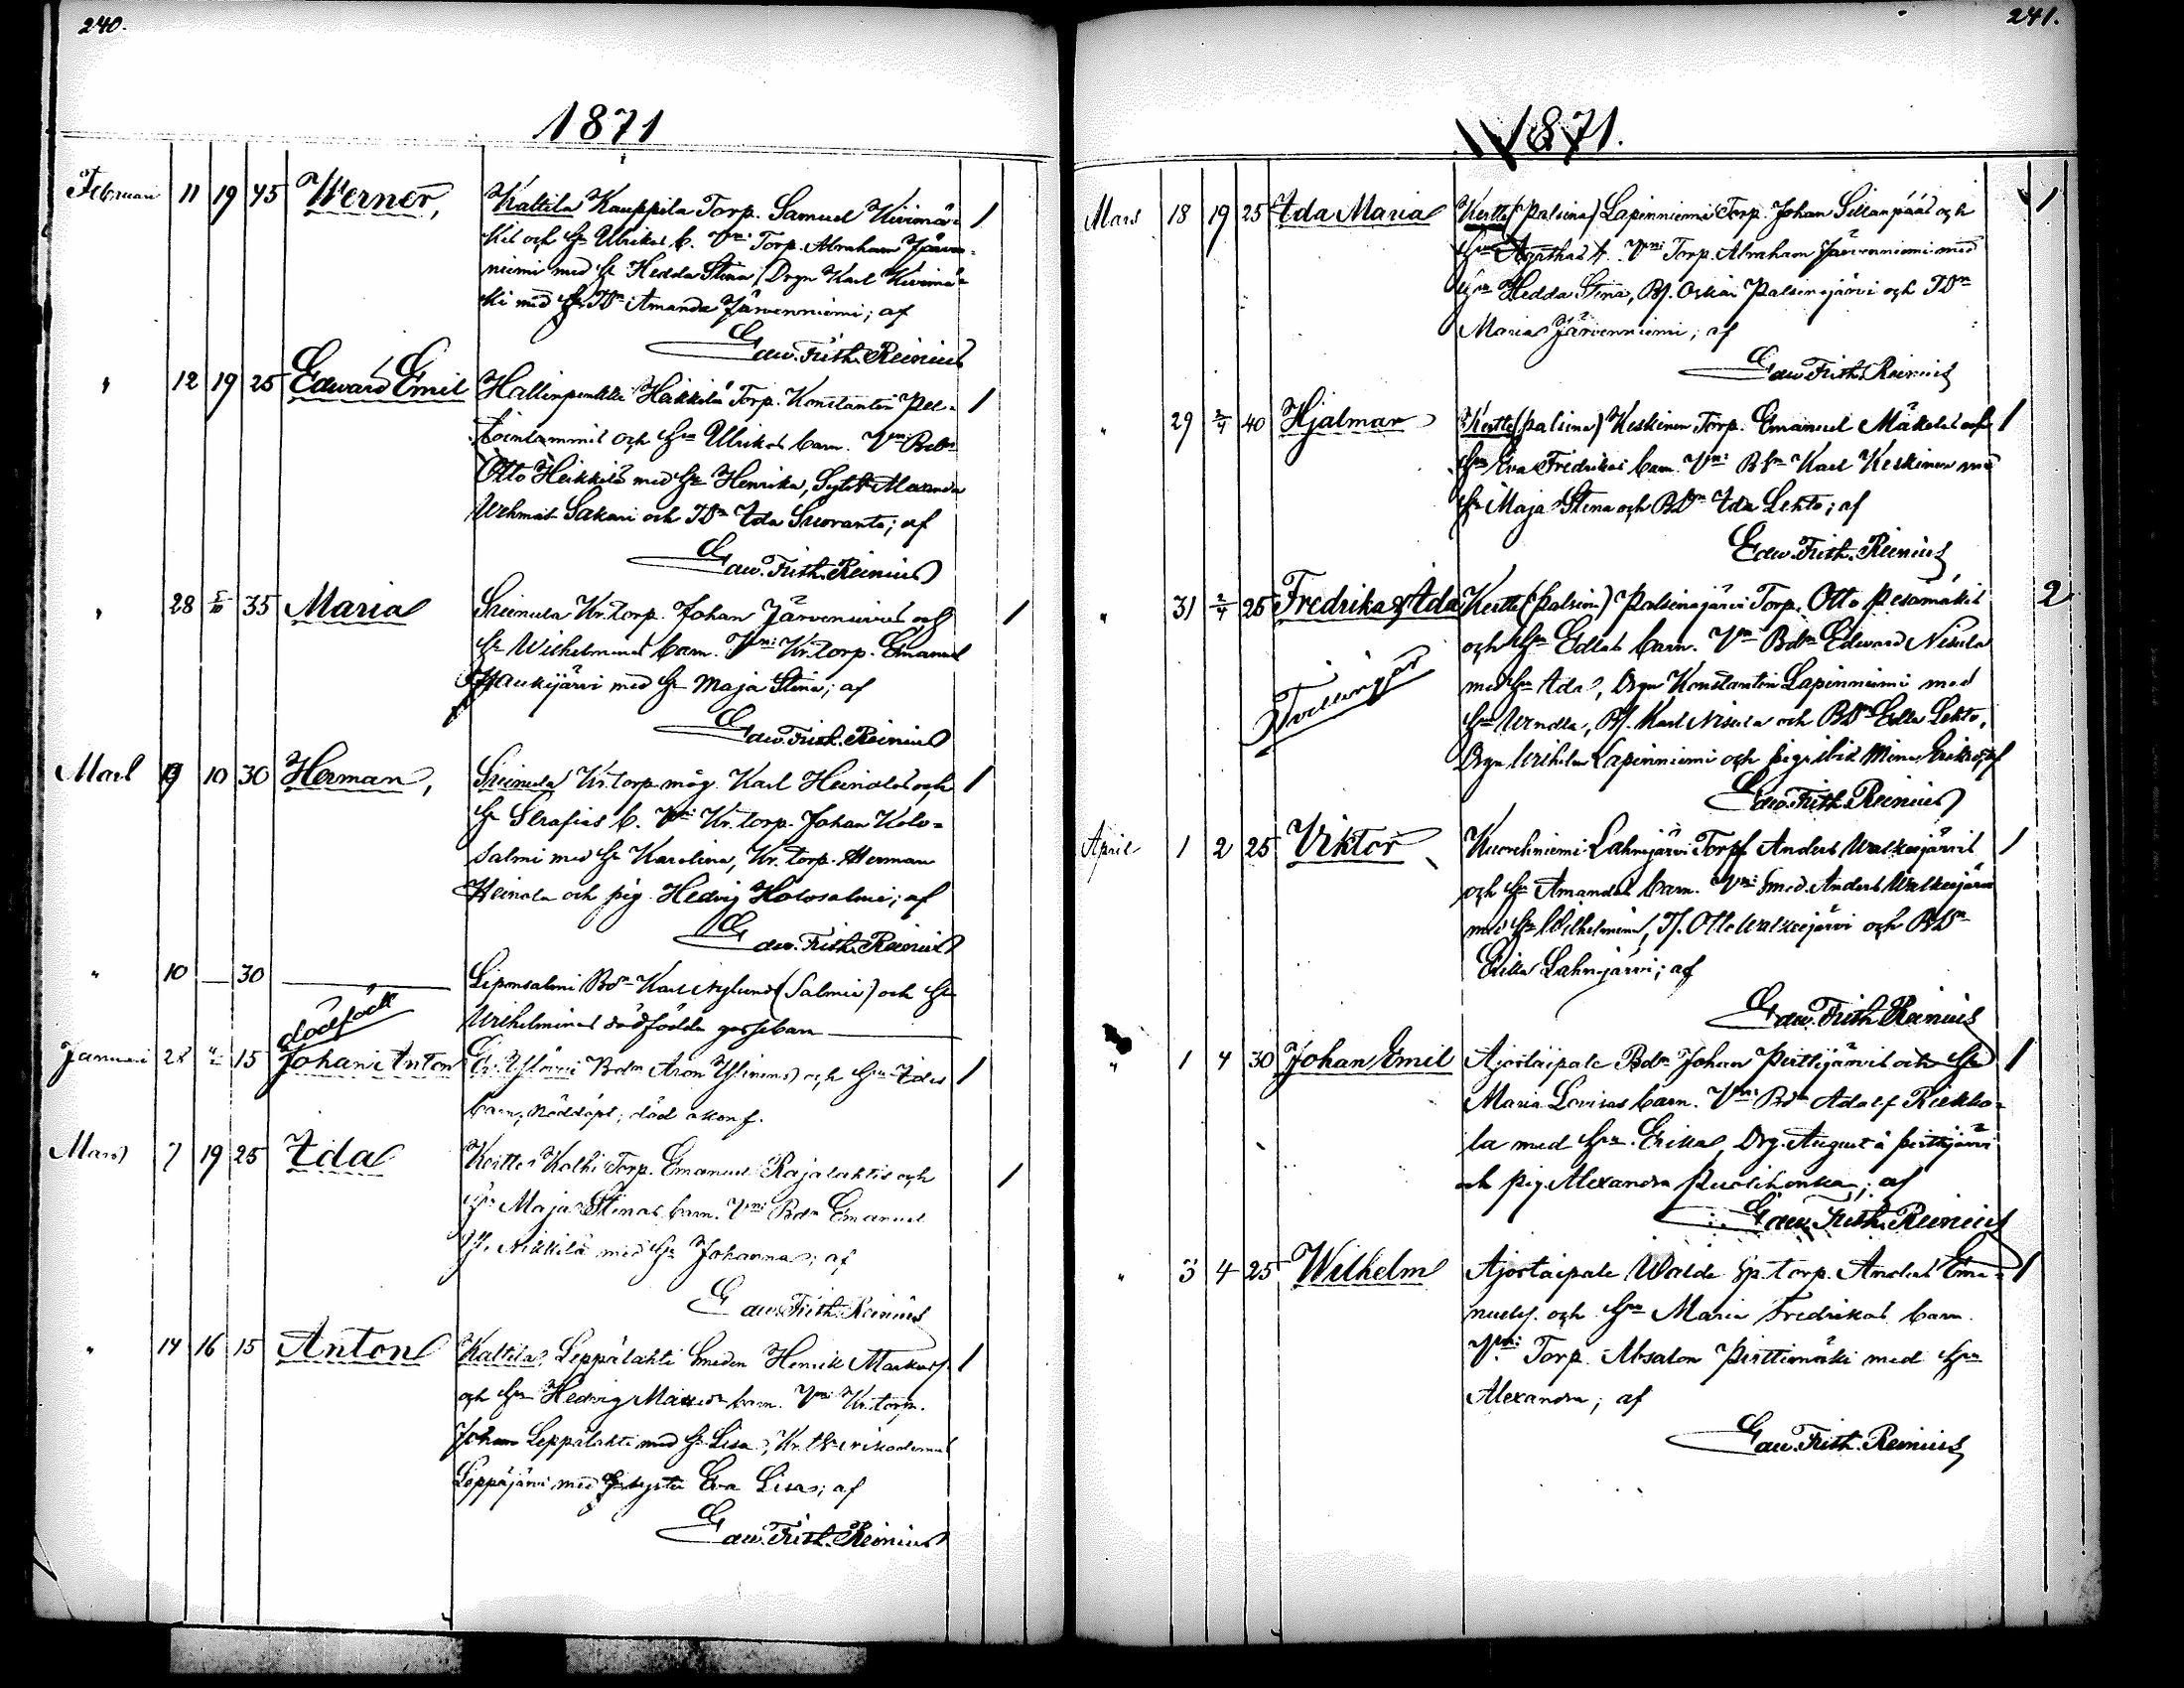 240.
1871
Februari 11 19 45 Werner, Kaltila Kauppila Torp. Samuel Kivimä- 1
kis och Hu Ulrikas b. Vni: Torp. Abraham Järven-
niemi med H: Hedda Stina, Drgn Karl Kivimä-
ki med TDr Amanda Järvenniemi; af
Edw. Frith. Reinius
" 12 19 25 Edward Emil Hallinpenkki Heikkilä Torp. Konstantin 1
och Hu Ulrikas barn. Vni: Bdn
Otto Heikkilä med Hu Henrika,
Sakari och TDr Ida Suoranta; af
Edw. Frith. Reinius
" 28 5/3 35 Maria Kr. torp. Johan och 1
Hu Wilhelminas barn. Vni: Kr. torp. Emanuel
Haukijärvi med Hu Maja Stina; af
Edw. Frith. Reinius
Mars 9 10 30 Herman, Kr. torp. måg Karl Heinolas och 1
Hu Serafias b. Vni: Kr. torp. Johan Kolo-
salmi med Hu Karolina, Kr. torp. Herman
Heinola och pig. Hedvig Kolosalmi; af
Edw. Frith. Reinius
" 10 — 30 — Liponsalmi Bdn Karl Nylund (Salmis) och Hu
dödfödt
Wilhelminas dödfödda gossebarn
Januari 28 15 Johan Anton Bdn Aron Ylinens och Hu Idas 1
barn, nöddöpt; död
Mars 7 19 25 Ida Kertte Kolhi Torp. Emanuel Rajalahtis och 1
Hu Maja Stinas barn. Vni: Bdn Emanuel
Nikkilä med Hu Johanna; af
Edw. Frith. Reinius
" 14 16 15 Anton Kaltila Leppälahti Smeden Henrik 1
och Hu Hedvig barn. Vni: Kr. torp.
Johan Leppälahti med Hu Lisa,
Leppäjärvi med syster Eva Lisa; af
Edw. Frith. Reinius
241.
1871.
Mars 18 19 25 Ida Maria Kertte (Palsina) Lapinniemi Torp. Johan Sillanpääs och 1
Hu Agathas b. Vni: Torp. Abraham Järvenniemi med
Hu Hedda Stina, Bs. Oskar Palsinajärvi och TDr
Maria Järvenniemi; af
Edw. Frith. Reinius
" 29 2/4 40 Hjalmar Kertte (Palsina) Keskinen Torp. Emanuel Mäkeläs och 1
Hu Eva Fredrikas barn. Vni: Bdn Karl Keskinen med
Hu Maja Stina och BDr Ida Lehto; af
Edw. Frith. Reinius
" 31 2/4 25 Fredrika & Ida Kertte (Palsina) Palsinajärvi Torp. Otto Pesämäkis 2
Tvillingar
och Hu Edlas barn. Vni: Bdn Edward Nisula
med Hu Ida, Drgn Konstantin Lapinniemi med
Hu Wendla, Bs. Karl Nisula och BDr Edla Lehto,
Drgn Wilhelm Lapinniemi och Mina af
Edw. Frith. Reinius
April 1 2 25 Viktor Kuorehniemi Lahnajärvi Torp. Anders Walkeejärvis 1
och Hu Amandas barn. Vni: Smed. Anders Walkeejärvi
med Hu Wilhelmina, Ts. Otto Walkeejärvi och BDr
Erika Lahnajärvi; af
Edw. Frith. Reinius
" 1 4 30 Johan Emil Ajostaipale Bdn Johan Perttijärvis och Hu 1
Maria Lovisas barn. Vni: Bdn Adolf Riekko-
la med Hu Erika, Drg. August å Perttijärvi
och pig. Alexandra af
Edw. Frith. Reinius
" 3 4 25 Wilhelm Ajostaipale Walde Sp. torp. Anders Ema- 1
nuels. och Hu Maria Fredrikas barn.
Vni: Torp. Absalon Perttimäki med Hu
Alexandra; af
Edw. Frith. Reinius